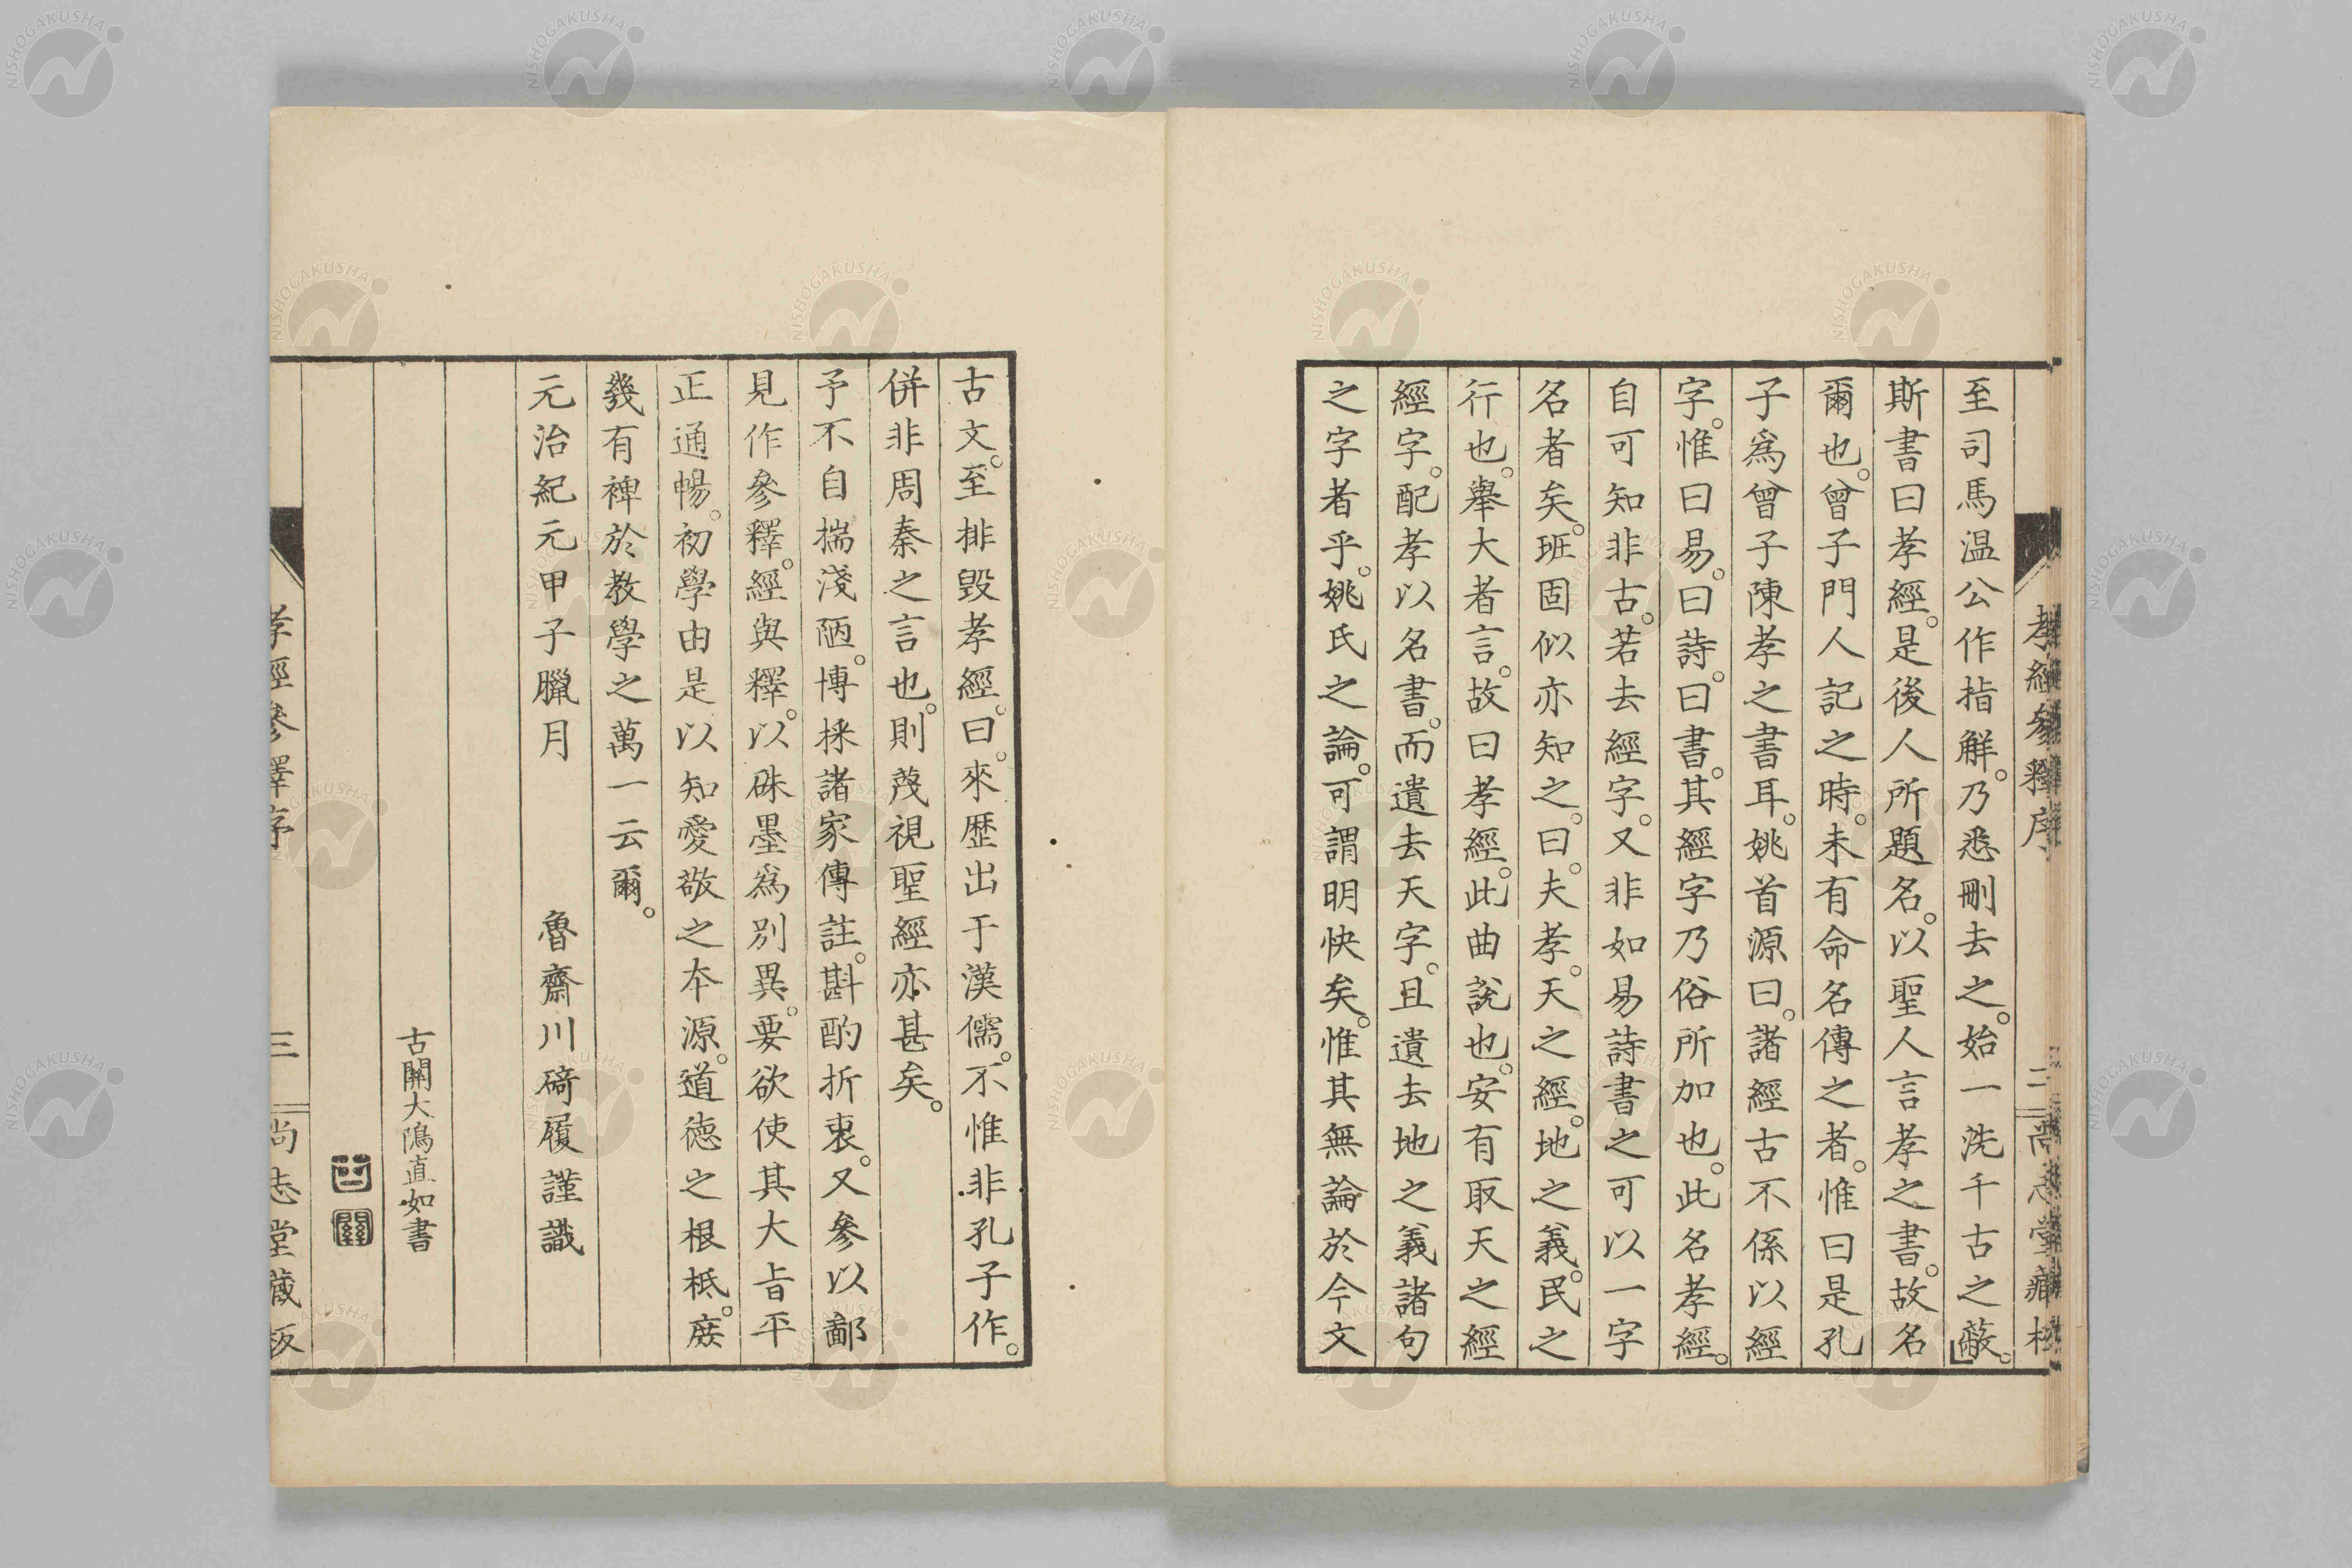 至司馬温公作指解。乃悉刪去之。始一洗千古之蔽。」
斯書曰孝經。是後人所題名。以聖人言孝之書。故名
爾也。曾子門人記之時。未有命名傳之者。惟曰是孔
子爲曾子陳孝之書耳。姚首源曰。諸經古不係以經
字。惟曰易。曰詩。曰書。其經字乃俗所加也。此名孝經。
自可知非古。若去經字。又非如易詩書之可以一字
名者矣。班固似亦知之。曰。夫孝。天之經。地之義。民之
行也。舉大者言。故曰孝經。此曲說也。安有取天之經
經字。配孝以名書。而遺去天字。且遺去地之義諸句
之字者乎。姚氏之論。可謂明快矣。惟其無論於今文
孝經參釋序
二
尚志堂藏板
古文。至排毀孝經。曰。來歷出于漢儒。不惟非孔子作。
併非周秦之言也。則蔑視聖經亦甚矣。
予不自揣淺陋。博採諸家傳註。斟酌折衷。又參以鄙
見作參釋。經與釋。以硃墨爲別異。要欲使其大旨平
正通暢。初學由是以知愛敬之本源。道德之根柢。庶
幾有裨於教學之萬一云爾。
元治紀元甲子臘月
魯齋川碕履謹識
古關大鳩直如書
孝經參釋序
三
尚志堂藏板